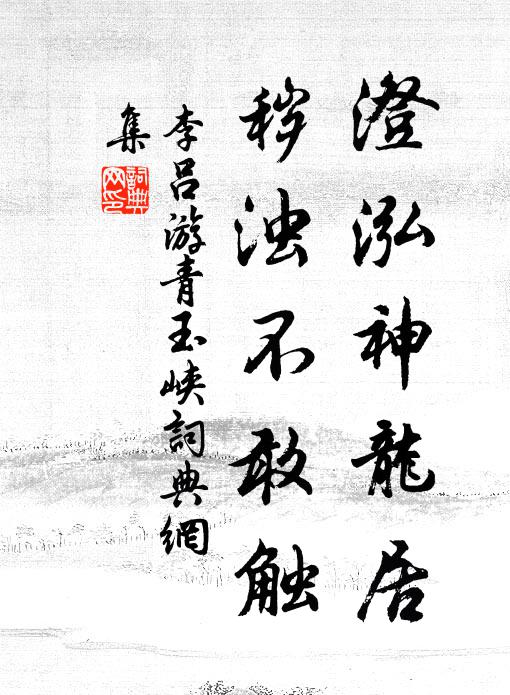 澄泓神龍居
秽浊不敢触
李吕游青玉峡詞典網
集
詞典
网印